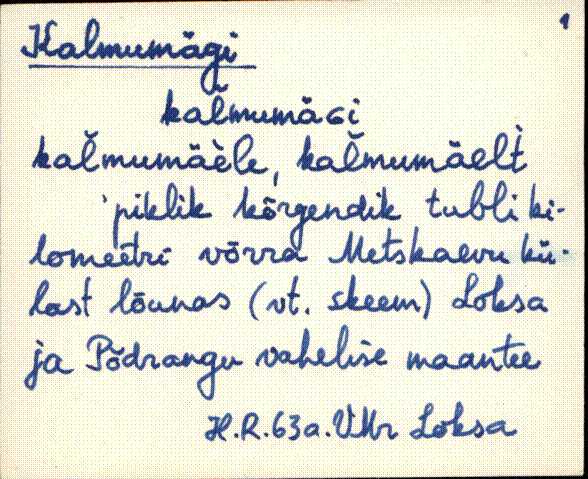 1
Kalmumägi
kaľmumäGi
kaľmumäèle, kaľmumäelt̀
piklik kõrgendik tubli ki-
lomeetri võrra Metskaevu kü-
last lõunas (vt. skeem) Loksa
ja Põdrangu vahelise maantee
H.R. 63a. VMr Loksa